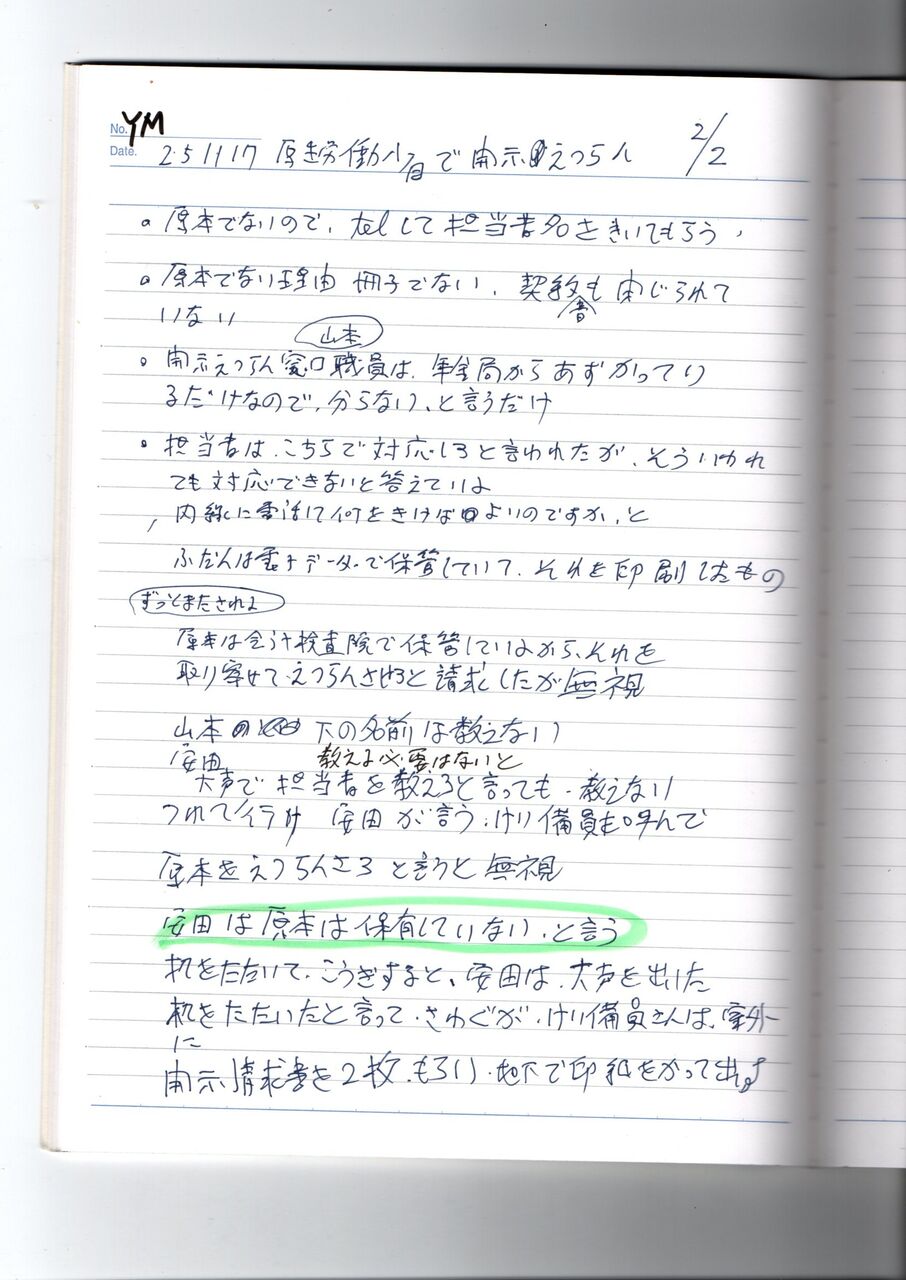 No. YM
Date. 251117 厚生労働省で開示えつらん 2/2
。原本でないので、telして担当者名をきいてもらう、
。原本でない理由 冊子でない、契約書も閉じられて
いない
山本
。開示えつらん窓口職員は、年金局からあずかってい
るだけなので、分らない、と言うだけ
。担当者は、こちらで対応しろと言われたが、そういわれ
ても対応できないと答えている
内線に電話して何をきけばよいのですか、と
ふだんは電子データーで保管していて、それを印刷したもの
ずっとまたされる
原本は会計検査院で保管しているから、それを
取り寄せて、えつらんさせろと請求したが無視
山本の 下の名前は教えない
安田 教える必要はないと
大声で担当者を教えろと言っても、教えない
つれて行け 安田が言う、けい備員も呼んで
原本をえつらんさろと言うと無視
安田は原本は保有していない、と言う
机をたたいて、こうぎすると、安田は、大声を出した
机をたたいたと言って、さわぐが、けい備員さんは、室外
に
開示請求書を2枚、もらい、地下で印紙をかって出す